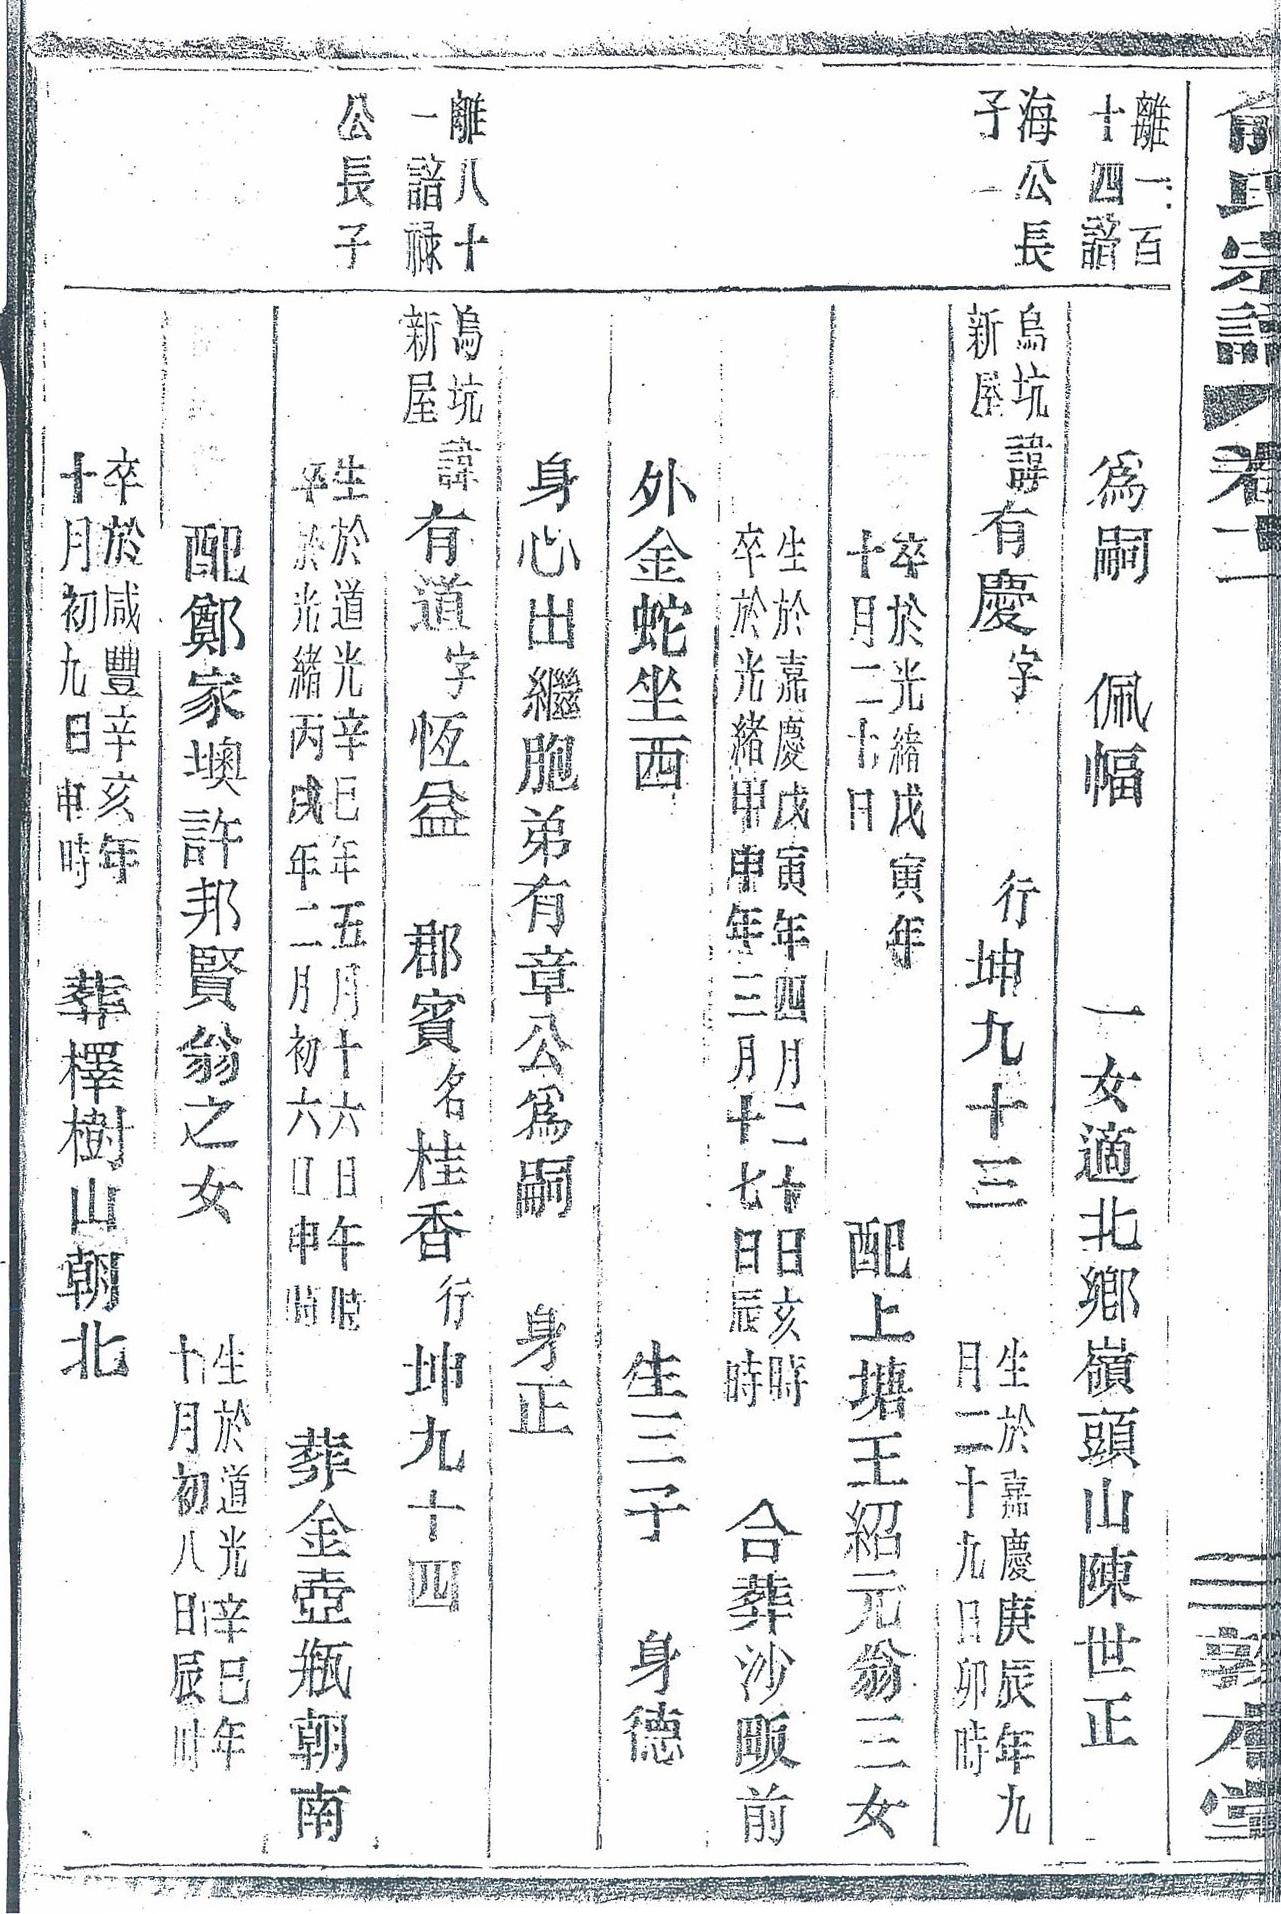 俞氏宗譜 卷十一 三 敦本堂
為嗣 佩幅 一女適北鄉嶺頭山陳世正
離一百
十四諮
海公長
子一
烏坑
新屋
諱有慶字 行坤九十三 生於嘉慶庚辰年九
月二十九日卯時
卒於光緒戊寅年
十月二十七日 配上塘王紹元翁三女
生於嘉慶戊寅年四月二十日亥時
卒於光緒甲申年三月十七日辰時 合葬沙畈前
外金蛇坐西 生三子 身德
身心出繼胞弟有章公為嗣 身正
離八十
一諮祿
公長子
烏坑
新屋
諱有道字恆益 郡賓名桂香行坤九十四
生於道光辛巳年五月十六日午時
卒於光緒丙戌年二月初六日申時 葬金壺瓶朝南
配鄭家墺許邦賢翁之女 生於道光辛巳年
十月初八日辰時
卒於咸豐辛亥年
十月初九日申時 葬檡樹山朝北